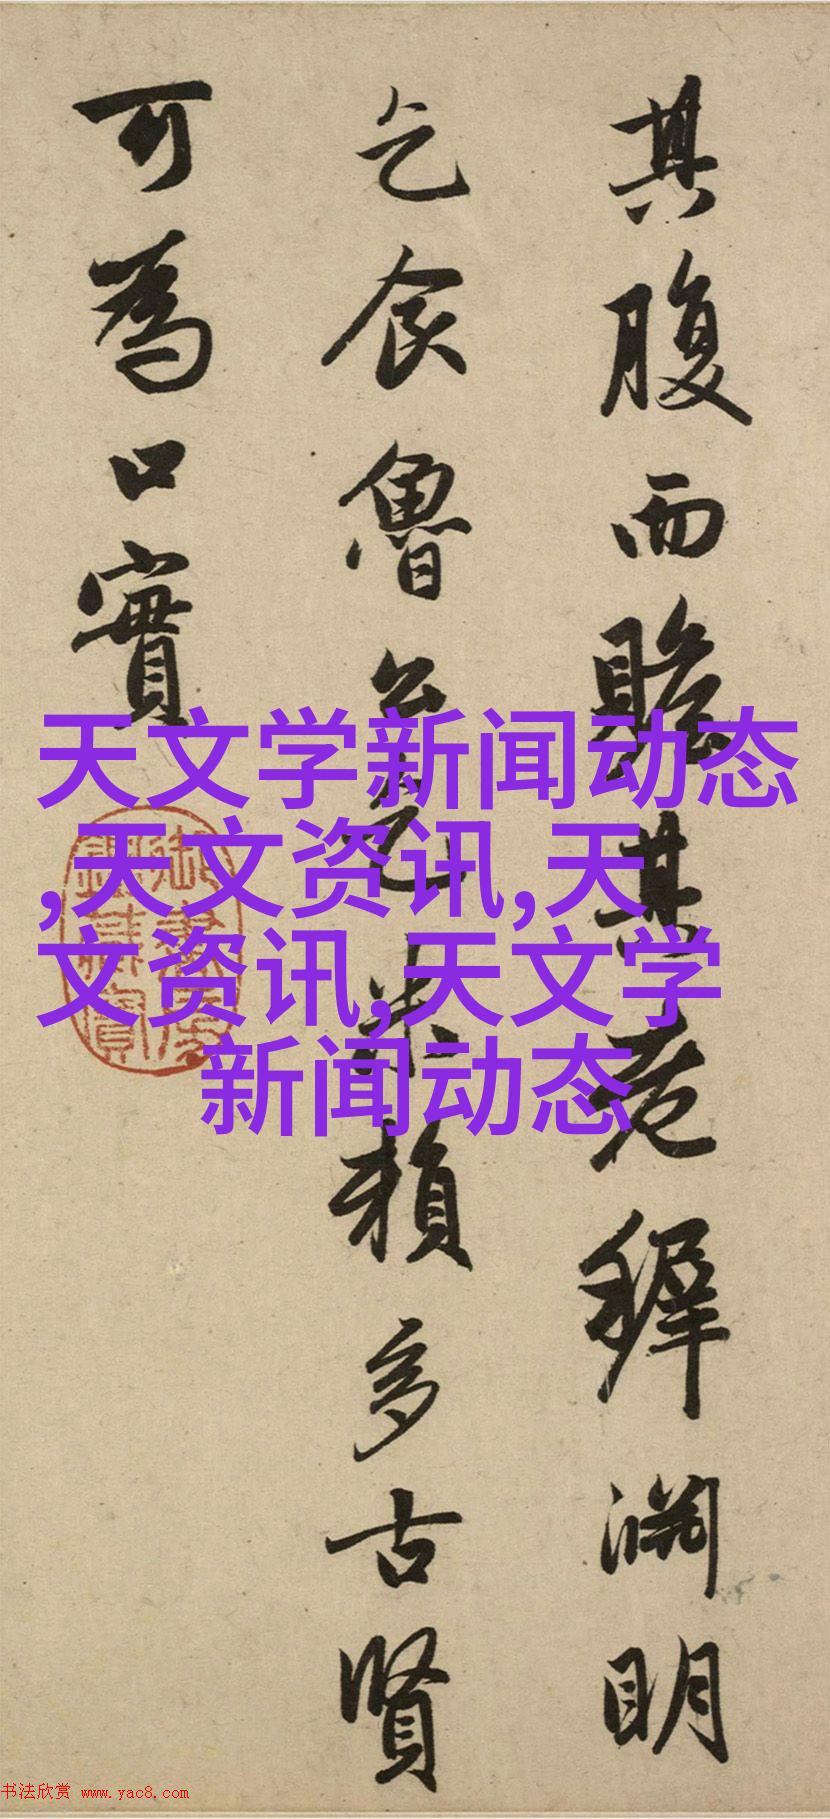 其腹而贍其老穉淵明
乞食魯公乞米賴多古賢
可為口實
天文学新闻动态
,天文资讯,天
文资讯,天文学
新闻动态
书法欣赏 www.yac8.com